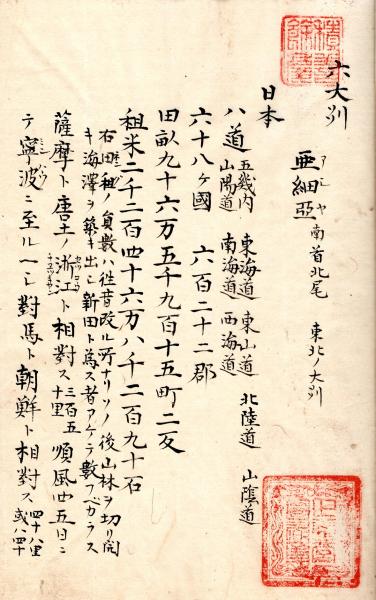 六大列
亜細亞 アシヤ 南首北尾 東北ノ大列
日本
八道 五畿内 東海道 東山道 北陸道 山陰道
山陽道 南海道 西海道
六十八ケ國 六百二十二郡
田畝九十六万五千九百十五町二反
租米二千二百四十六万八千二百九十石
右田租ノ員數ハ徃昔改ル所ナリソノ後山林ヲ切リ開
キ海澤ヲ築キ出シ新田ト為ス者アケテ數フベカラス
薩摩ト唐土ノ浙江ト相對ス 三百五十里 順風四五日ニ
テ寧波ニ至ルヘシ對馬ト朝鮮ト相對ス 四十八里 或ハ四十